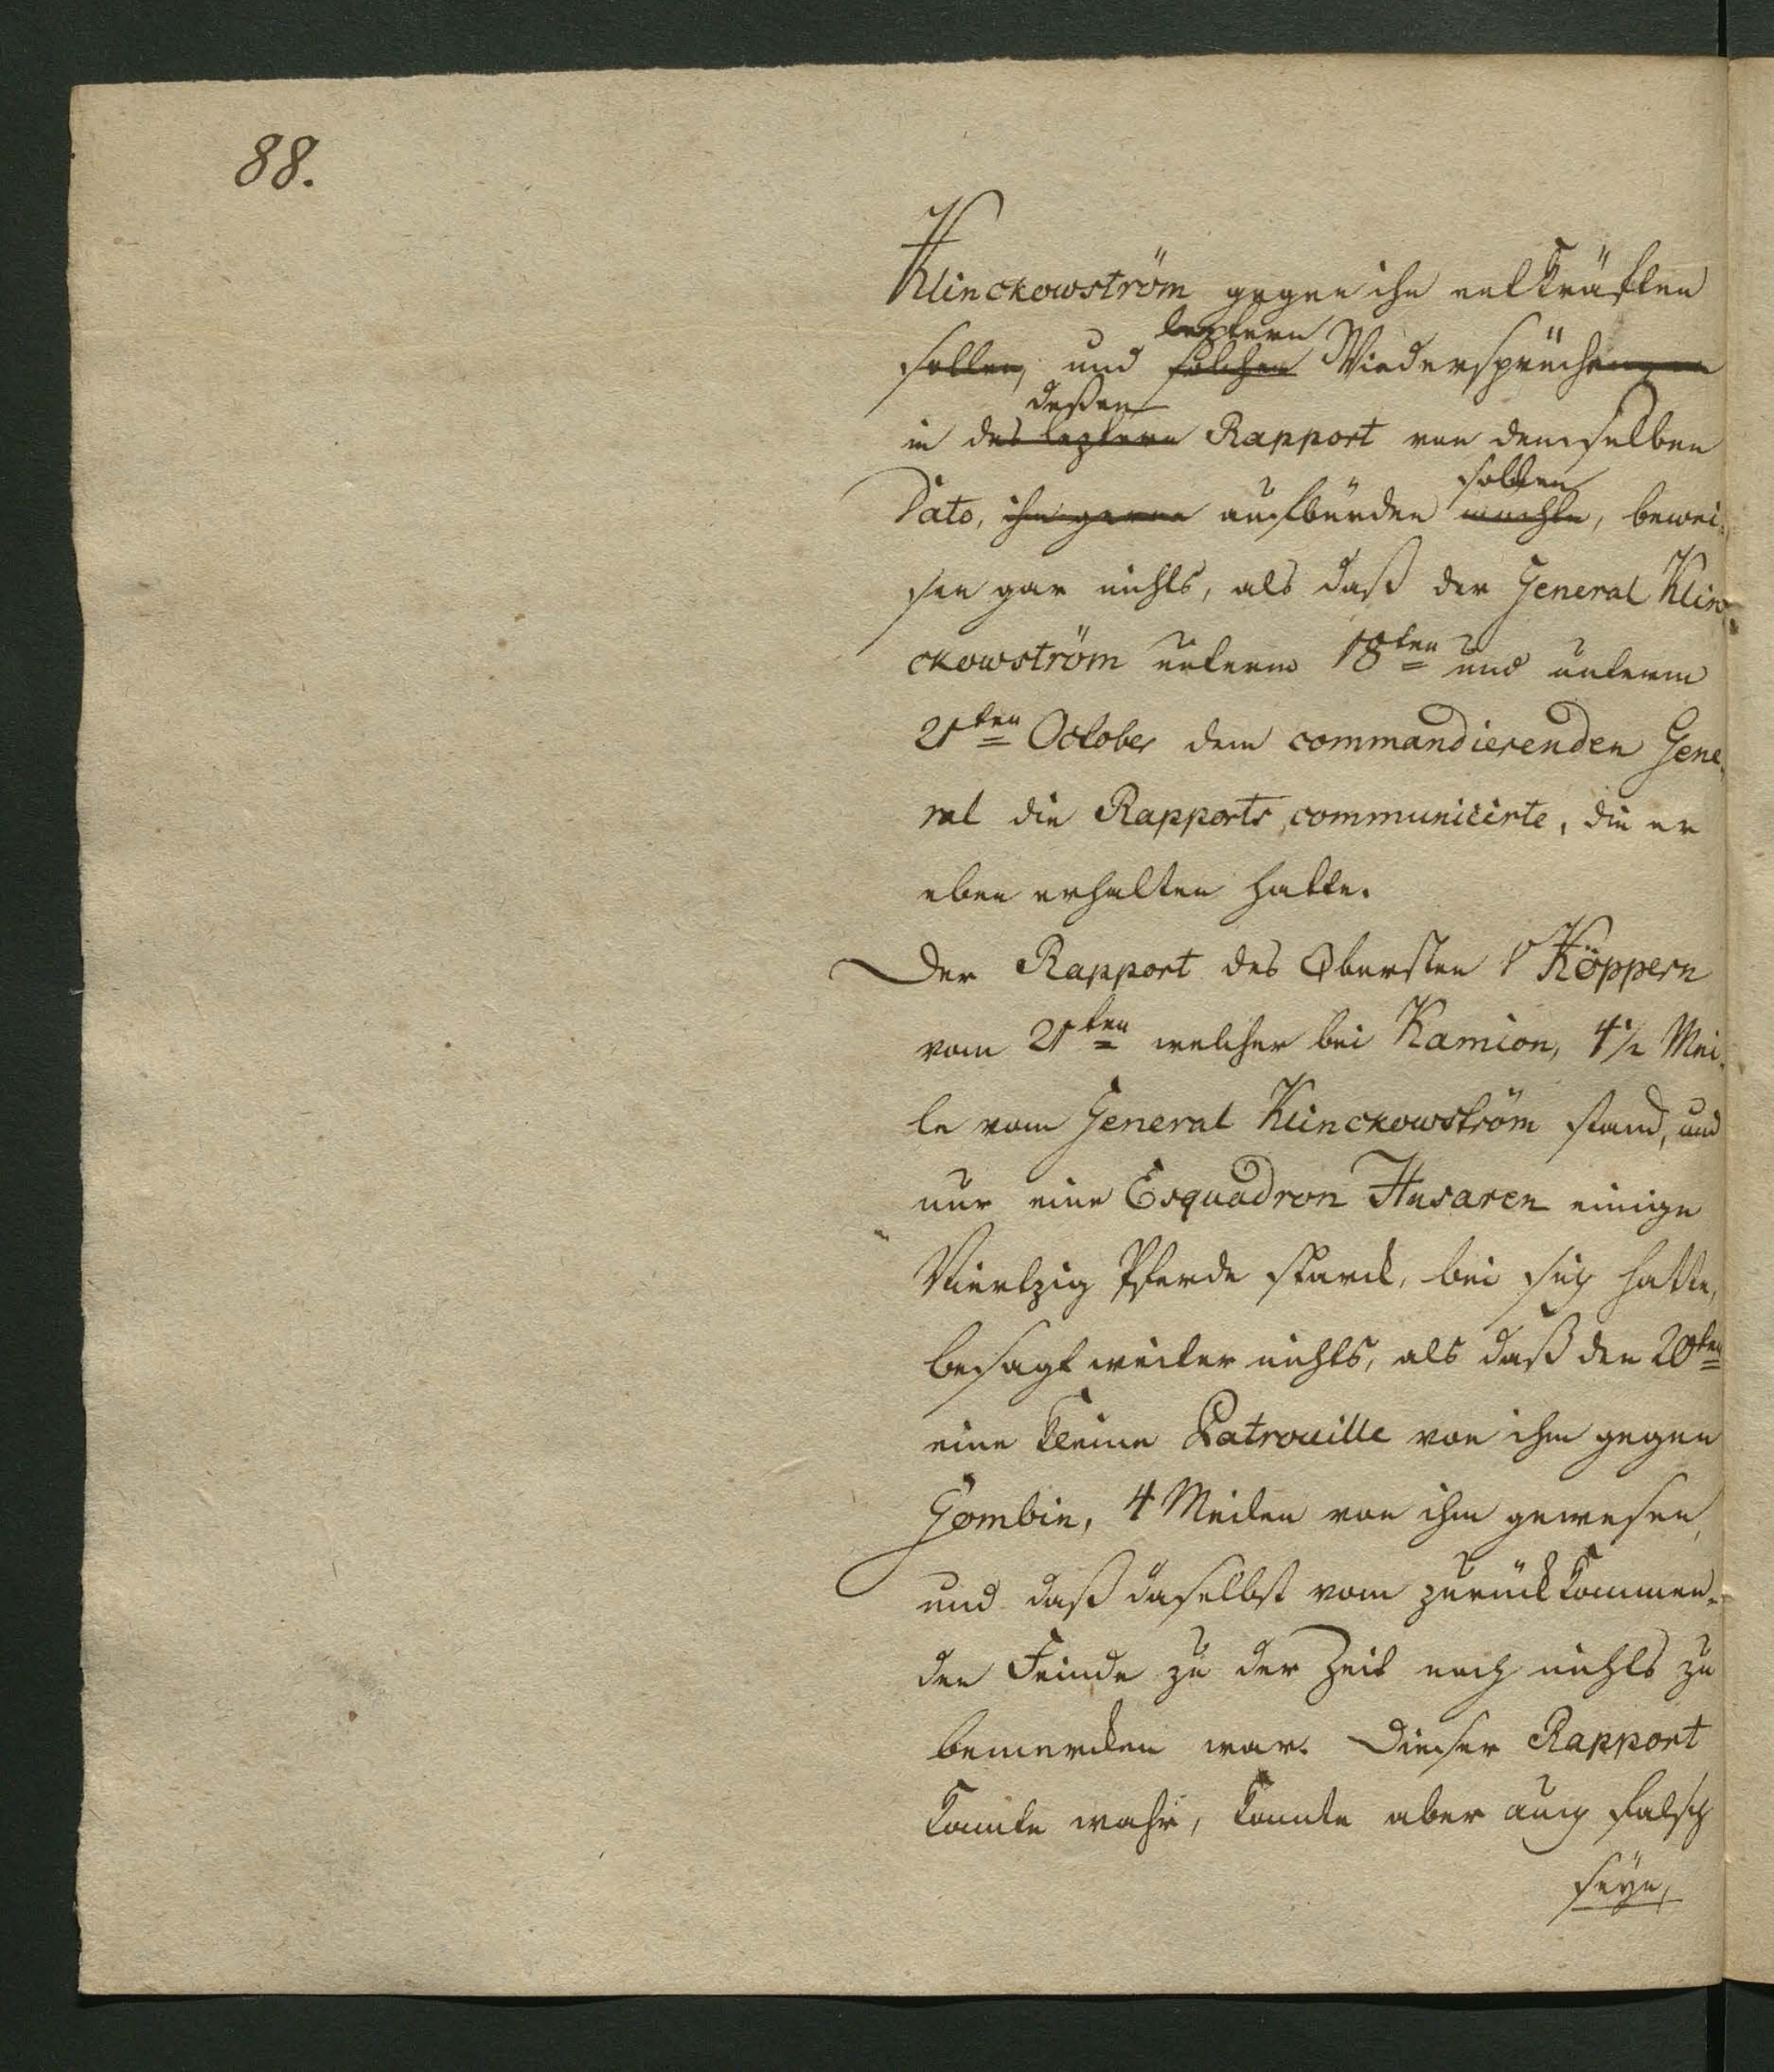 88.
Klinckowström gegen ihn entkräften
leztern
sollen, und solchen Wiedersprüchen
deßen
in des leztern Rapport von demselben
sollen
Dato, ihm gerne aufbürden mochte, bewei-
sen gar nichts, als daß der General Klin-
ckowström unterm 18ten und unterm
21ten October dem commandierenden Gene-
ral die Rapports communicirte, die er
eben erhalten hatte.
Der Rapport des Obersten v Köppern
vom 21ten welcher bei Kamion, 4½ Mei-
le vom General Klinckowström stand, und
nur eine Esquadron Husaren einige
Viertzig Pferde starck, bei sich hatte,
besagt weiter nichts, als daß den 20ten
eine kleine Patrouille von ihm gegen
Gombin, 4 Meilen von ihm gewesen,
und daß daselbst vom zurückkommen-
den Feinde zu der Zeit noch nichts zu
bemercken war. Dieser Rapport
konnte wahr, konnte aber auch falsch
seyn,